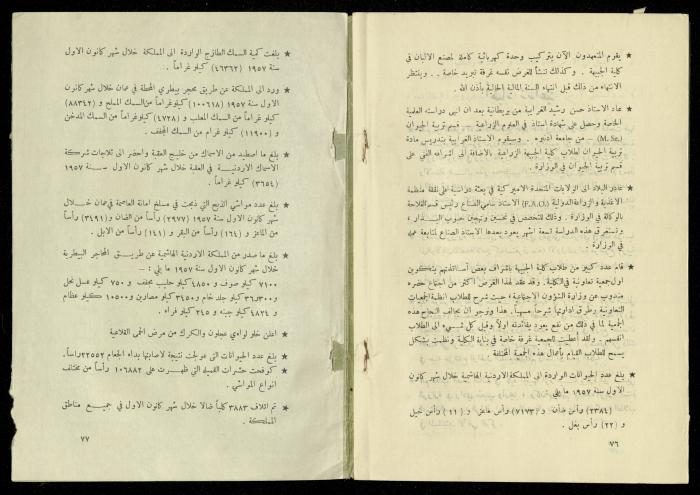 ★ يقوم المتعهدون الآن بتركيب وحدة كهربائية كاملة لمصنع الالبان في
كلية الجبيهة . وكذلك تنشأ للغرض نفسه غرفة تبريد خاصة .. وينتظر
الانتهاء من ذلك قبل انتهاء السنة المالية الحالية بأذن الله .
★ عاد الاستاذ حسن رشيد الغرايبة من بريطانية بعد ان انهى دراسته العلمية
الخاصة وحصل على شهادة استاذ في العلوم الزراعية – قسم تربية الحيوان
(M. Sc.) – من جامعة ادنبره . وسيقوم الاستاذ الغرايبة بتدريس مادة
تربية الحيوان لطلاب كلية الجبيهة الزراعية بالاضافة الى اشرافه الفني على
قسم تربية الحيوان في الوزارة .
★ غادر البلاد الى الولايات المتحدة الاميركية في بعثة دراسية على نفقة منظمة
الاغذية والزراعة الدولية (F.A.O.) الاستاذ سامي الصناع رئيس قسم الفلاحة
بالوكالة في الوزارة . وذلك للتخصص في تحسين وتهجين حبوب البذار ،
وتستغرق هذه الدراسة تسعة اشهر يعود بعدها الاستاذ الصناع لمتابعة عمله
في الوزارة .
★ قام عدد كبير من طلاب كلية الجبيهة باشراف بعض أساتذتهم بتكوين
اول جمعية تعاونية في الكلية . وقد عقد لهذا الغرض أكثر من اجتماع حضره
مندوب عن وزارة الشؤون الاجتماعية ، حيث شرح للطلاب انظمة الجمعيات
التعاونية وطرق ادارتها شرحاً مسهباً . هذا ونرجو ان يحالف النجاح هذه
الجمعية لما في ذلك من نفع يعود بفائدته اولاً وقبل كل شيء الى الطلاب
أنفسهم . ولقد أعطيت للجمعية غرفة خاصة في بناية الكلية ونظمت بشكل
يسمح للطلاب القيام بأعمال هذه الجمعية المختلفة
★ بلغ عدد الحيوانات الواردة الى المملكة الاردنية الهاشمية خلال شهر كانون
الاول سنة ١٩٥٧ ما يلي
(٢٣٨٤) رأس ضأن و (٧١٧٣) رأس ماعز و (١١) رأس خيل
و (٢٢) رأس بغل .
٧٦
★ بلغت كمية السمك الطازج الواردة الى المملكة خلال شهر كانون الاول
سنة ١٩٥٧ (٤٦٣٦٢) كيلو غراماً .
★ ورد الى المملكة عن طريق محجر بيطري المحطة في عمان خلال شهر كانون
الاول سنة ١٩٥٧ (١٠٠٦١٨) كيلوغراماً من السمك المملح و (٨٨٣٤٢)
كيلو غراماً من السمك المعلب و (٤٧٢٨) كيلوغراماً من السمك المدخن
و (١١٩٠٠) كيلو غرام من السمك المجفف .
★ بلغ ما اصطيد من الاسماك من خليج العقبة واحضر الى ثلاجات شركة
الاسماك الاردنيـة في العقبة خلال شهر كانون الاول سنة ١٩٥٧
(٣٦٥٤) كيلو غراماً .
★ بلغ عدد مواشي الذبح التي ذبحت في مسلخ امانة العاصمة في عمان خلال
شهر كانون الاول سنة ١٩٥٧ (٢٩٧٧) رأساً من الضأن و (٣٤٩١) رأساً
من الماعز و (١٦٤) رأساً من البقر و (١٤١) رأساً من الابل .
★ بلغ ما صدر من المملكة الاردنية الهاشمية عن طريق المحاجر البيطرية
خلال شهر كانون الاول سنة ١٩٥٧ ما يلي : –
٧١٠٠ كيلو صوف و ٤٨٥٠ كيلو حليب مجفف و ٧٥٠ كيلو عسل نحل
و ٣٦٫٣٠٠ كيلو جلد خام و ٣٤٥٠ كيلو مصارين و ١٠٥٠٠ كيلو عظام
و ٤٨٢٤ كيلو جبنه و ٢٤٥ كيلو فراء .
★ اعلن خلو لواءي عجلون والكرك من مرض الحمى القلاعية
★ بلغ عدد الحيوانات التي عولجت نتيجة لاصابتها بداء الجعام ٢٢٥٥٢ رأساً .
★ كوفحت حشرات القميد التي ظهرت على ١٠٦٨٨٢ رأساً من مختلف
انواع المواشي .
★ تم اتلاف ٣٨٨٣ كلباً ضالا خلال شهر كانون الاول في جميع مناطق
المملكة .
٧٧